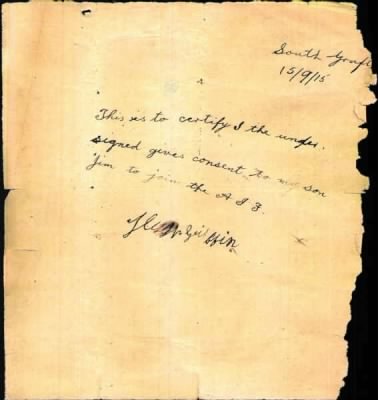 South Graft
15/9/15
This is to certify I the under.
signed gives consent to my son
Jim to join the A I F.
Griffin